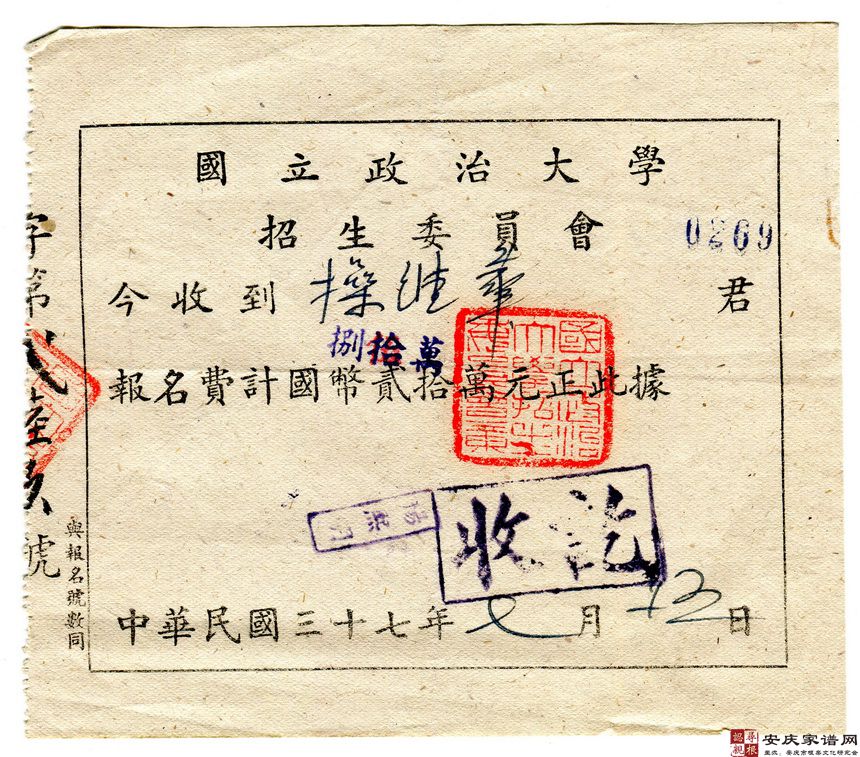 國立政治大學
招生委員會
0269
今收到 操維華 君
捌拾萬
報名費計國幣貳拾萬元正此據
收訖
中華民國三十七年七月十三日
字第貳陸玖號
與報名號數同
尋根
認親
安庆家谱网